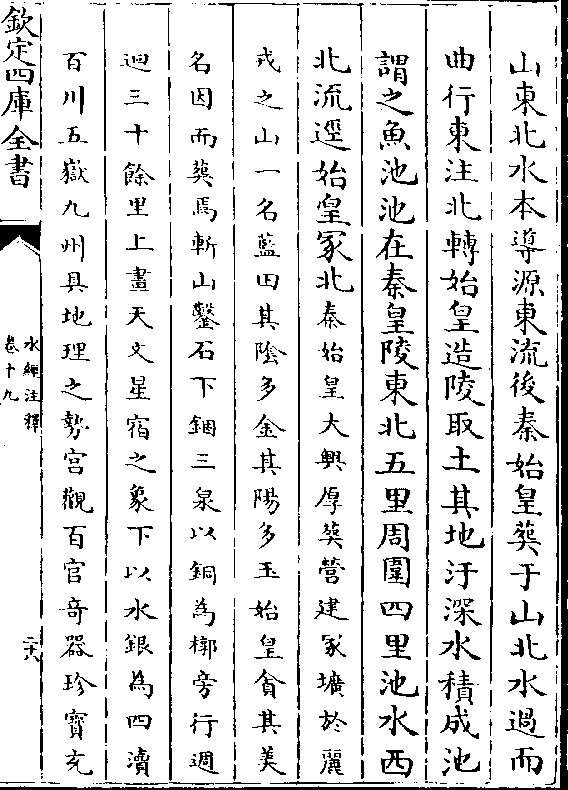 山東北水本導源東流後秦始皇葬于山北水過而
曲行東注北轉始皇造陵取土其地汙深水積成池
謂之魚池池在秦皇陵東北五里周圍四里池水西
北流逕始皇冢北秦始皇大興厚葬營建冢壙於麗
戎之山一名藍田其陰多金其陽多玉始皇貪其美
名因而葬焉斬山鑿石下錮三泉以銅為槨旁行週
迴三十餘里上畫天文星宿之象下以水銀為四瀆
百川五嶽九州具地理之勢宮觀百官奇器珍寶充
欽定四庫全書
水經注釋
卷十九
二六